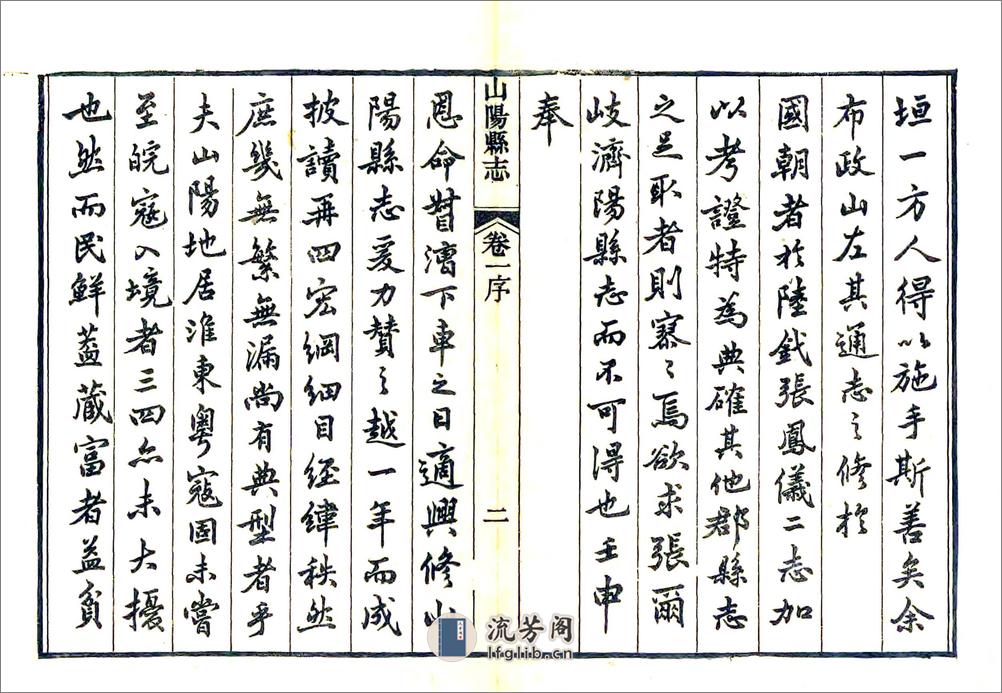 垣一方人得以施手斯善矣余
布政山左其通志之修於
國朝者於陸釴張鳳儀二志加
以考證特為典確其他郡縣志
之足取者則寥〻焉欲求張爾
岐濟陽縣志而不可得也壬申
奉
山陽縣志
卷一序
二
恩命督漕下車之日適興修山
陽縣志爰力贊之越一年而成
披讀再四宏綱細目經緯秩然
庶幾無繁無漏尚有典型者乎
夫山陽地居淮東粵寇固未嘗
至皖寇入境者三四亦未大擾
也然而民鮮蓋藏富者益貧
流芳阁
lfglib.cn